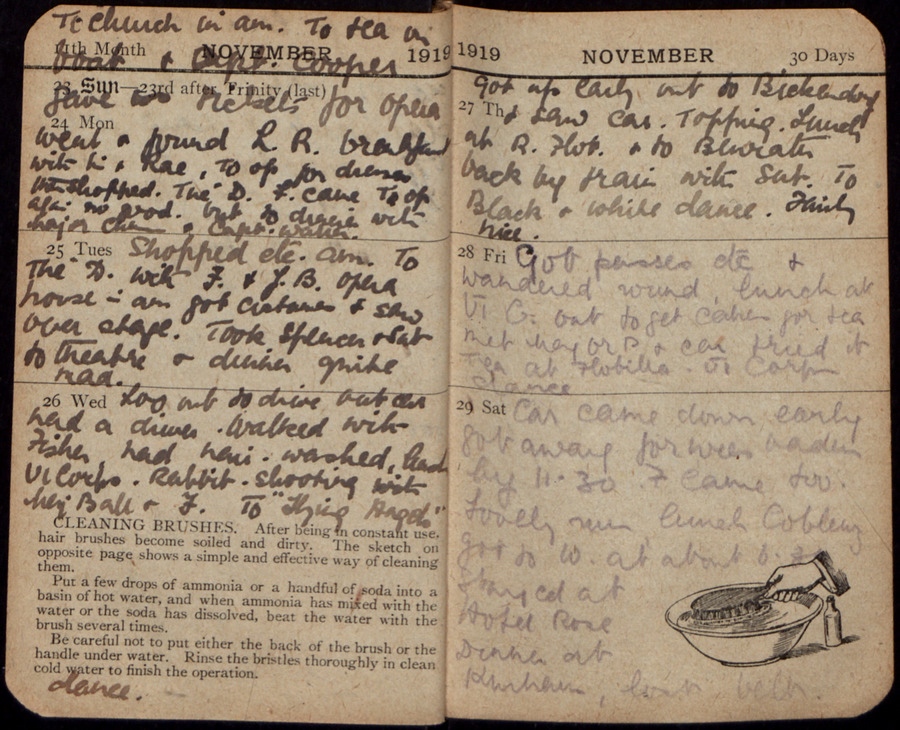 To church in am. To tea in
11th Month NOVEMBER 1919
boat & Capt. Cooper
23 Sun—23rd after Trinity (last)
gave us tickets for opera
24 Mon
Went & found L. R. breakfast
with & Rae, To op for dresses
shopped. The D. F. came To op
again no good. but to dinner with
Major & Capt.
25 Tues Shopped etc. am. To
The D. with F. & J. B. opera
house in am got costumes & saw
over stage. Took Spencer & Sut
to theatre & dinner quite
mad.
26 Wed Too out to drive out car
had a dinner. Walked with
Fisher had hair washed, lunch
VI Corps. Rabbit-shooting with
Maj Ball & F. To "Flying Angels"
CLEANING BRUSHES. After being in constant use,
hair brushes become soiled and dirty. The sketch on
opposite page shows a simple and effective way of cleaning
them.
Put a few drops of ammonia or a handful of soda into a
basin of hot water, and when ammonia has mixed with the
water or the soda has dissolved, beat the water with the
brush several times.
Be careful not to put either the back of the brush or the
handle under water. Rinse the bristles thoroughly in clean
cold water to finish the operation.
dance.
1919 NOVEMBER 30 Days
Got up early out to Bickendorf
27 Th & saw car. Topping. Lunch
at R. Hot. & to
back by train with Sut. To
Black & white dance. Fairly
nice.
28 Fri Got passes etc &
wandered round, lunch at
VI C. out to get cakes for tea
met Major P & car tried it
Tea at Flotilla. VI Corps
dance
29 Sat Car came down early
got away for
by 11.30. F came too.
Lovely run lunch Coblenz
got to W. at about
Stayed at
Hotel Rose
Dinner at
Kurhaus, lost belt.